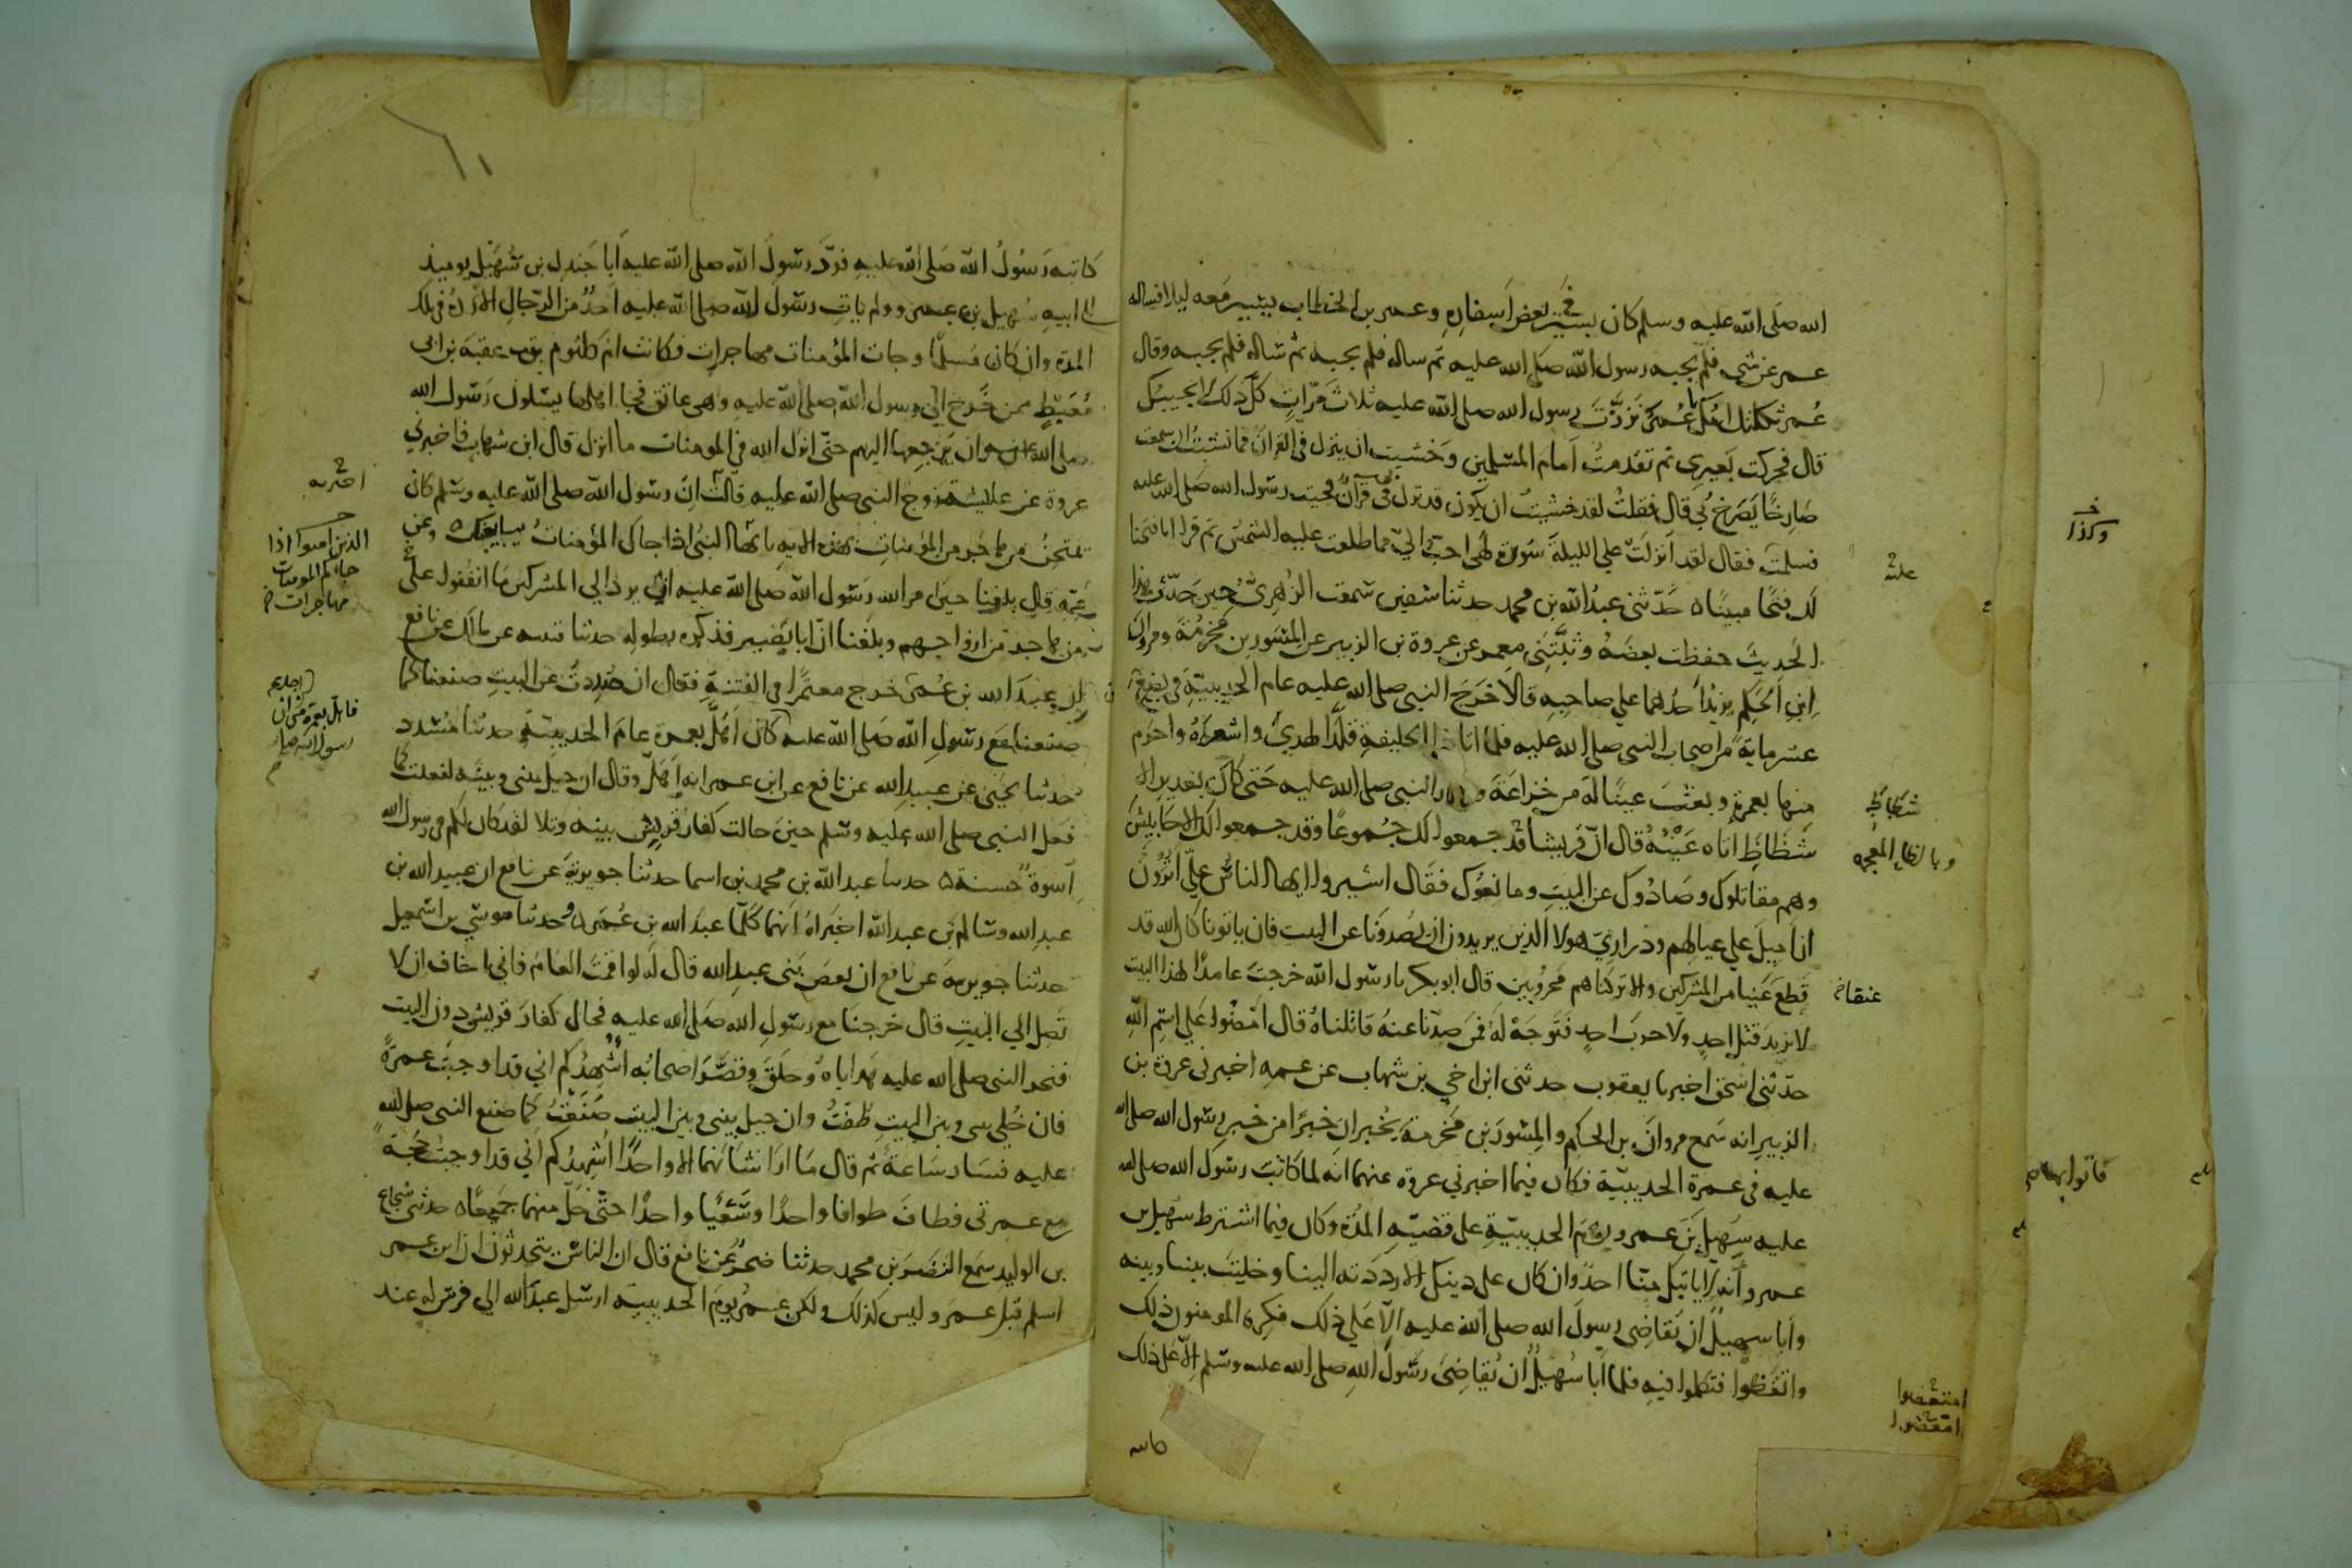 الله صلى الله عليه وسلم كان يسير في بعض اسفاره وعمر بن الخطاب يسير معه ليلا فساله
عمر عن شي فلم يجبه رسول الله صلى الله عليه ثم ساله فلم يجبه ثم ساله فلم يجبه وقال
عمر ثكلتك امك يا عمر نزرت رسول الله صلى الله عليه ثلاث مرات كل ذلك لا يجيبك
قال فحركت بعيري ثم تقدمت امام المسلمين وخشيت ان ينزل في القران فما نشبت ان سمعت
صارخا يصرخ بي قال فقلت لقد خشيت ان يكون قد نزل في قران فجيت رسول الله صلى الله عليه
فسلمت فقال لقد انزلت علي الليلة سورة لهي احب الي مما طلعت عليه الشمس ثم قرا انا فتحنا
علىه
لك فتحا مبينا ه حدثني عبد الله بن محمد حدثنا سفين سمعت الزهري حين حدث هذا
الحديث حفظت بعضه وثبتني معمر عن عروة بن الزبير عن المسور بن مخرمة ومروان
ابن الحكم يزيد احدهما علي صاحبه قالا خرج النبي صلى الله عليه عام الحديبية في بضع
عشر ماية من اصحاب النبي صلى الله عليه فلما اتا ذا الحليفة قلد الهدي واشعره واحرم
منها بعمرة وبعث عينا له من خزاعة وسار النبي صلى الله عليه حتى كان بغدير الا
شظاظ
شظاظ اتاه عينه قال ان قريشا قد جمعوا لك جموعا وقد جمعوا لك الاحابيش
وبالظاء المعجمه
وهم مقاتلوك وصادوك عن البيت ومانعوك فقال اشيروا ايها الناس علي اترون
ان اميل علي عيالهم وذراري هولا الذين يريدون ان يصدونا عن البيت فان ياتونا كان الله قد
قطع عينا من المشركين والا تركناهم محروبين قال ابو بكر يا رسول الله خرجت عامدا لهذا البيت
عنقا
لا نريد قتل احد ولا حرب احد فتوجه له فمن صدنا عنه قاتلناه قال امضوا على اسم الله
حدثني اسحق اخبرنا يعقوب حدثني ابن اخي بن شهاب عن عمه اخبرني عروة بن
الزبير انه سمع مروان بن الحكم والمسور بن مخرمة يخبران خبرا من خبر رسول الله صلى الله
عليه في عمرة الحديبية فكان فيما اخبرني عروة عنهما انه لما كاتب رسول الله صلى الله
عليه سهيل بن عمرو يوم الحديبية على قضية المدة وكان فيما اشترط سهيل بن
عمرو انه لا ياتيك منا احد وان كان على دينك الا رددته الينا وخليت بيننا وبينه
وابا سهيل ان يقاضي رسول الله صلى الله عليه الا على ذلك فكره المومنون ذلك
وامعضوا فتكلموا فيه فلما ابا سهيل ان يقاضي رسول الله صلى الله عليه وسلم الا على ذلك
امتعضوا
امعضوا
كاتبه
وكذا
فاتوا بها
كاتبه رسول الله صلى الله عليه فرد رسول الله صلى الله عليه ابا جندل بن سهيل يوميذ
الى ابيه سهيل بن عمرو ولم يات رسول الله صلى الله عليه احد من الرجال الا رده في تلك
المدة وان كان مسلما وجات المؤمنات مهاجرات فكانت ام كلثوم بنت عقبة بن ابي
معيط ممن خرج الي رسول الله صلى الله عليه وهي عاتق فجا اهلها يسلون رسول الله
صلى الله عليه ان يرجعها اليهم حتى انزل الله في المومنات ما انزل قال ابن شهاب فاخبرني
عروة عن عايشة زوج النبي صلى الله عليه قالت ان رسول الله صلى الله عليه وسلم كان
يمتحن من هاجر من المؤمنات بهذه الايه يا ايها النبي اذا جاك المؤمنات يبايعنك ه وعن
الذين امنوا اذا
جاكم المومنات
مهاجرات
عمه قال بلغنا حين امر الله رسول الله صلى الله عليه ان يرد الي المشركين ما انفقوا على
من هاجر من ازواجهم وبلغنا ان ابا بصير فذكره بطوله حدثنا قتيبه عن مالك عن نافع
ان عبد الله بن عمر خرج معتمرا في الفتنة فقال ان صددت عن البيت صنعنا كما
صنعنا مع رسول الله صلى الله عليه كان اهل بعمرة عام الحديبية حدثنا مسدد
فاهل بعمرة من ان
رسول الله صلى
حدثنا يحيى عن عبيد الله عن نافع عن ابن عمر انه اهل وقال ان حيل بيني وبينه لفعلت كما
فعل النبي صلى الله عليه وسلم حين حالت كفار قريش بينه وتلا لقد كان لكم في رسول الله
اسوة حسنة ه حدثنا عبد الله بن محمد بن اسما حدثنا جويرية عن نافع ان عبيد الله بن
عبد الله وسالم بن عبد الله اخبراه انهما كلما عبد الله بن عمر ه وحدثنا موسي بن اسمعيل
حدثنا جويرية عن نافع ان بعض بني عبد الله قال له لو اقمت العام فاني اخاف ان لا
تصل الي البيت قال خرجنا مع رسول الله صلى الله عليه فحال كفار قريش دون البيت
فنحر النبي صلى الله عليه هداياه وحلق وقصر اصحابه اشهدكم اني قد اوجبت عمرة
فان خلي بيني وبين البيت طفت وان حيل بيني وبين البيت صنعت كما صنع النبي صلى الله
عليه فسار ساعة ثم قال ما ارا شانهما الا واحدا اشهدكم اني قد اوجبت حجة
مع عمرتي فطاف طوافا واحدا وسعيا واحدا حتى حل منهما جميعا ه حدثني شجاع
بن الوليد سمع النضر بن محمد حدثنا صخر عن نافع قال ان الناس يتحدثون ان ابن عمر
اسلم قبل عمر وليس كذلك ولكن عمر يوم الحديبية ارسل عبد الله الي فرس له عند